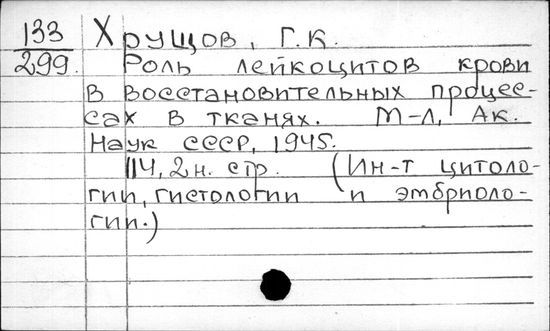 133 Хрущов, Г.К.
299. Роль лейкоцитов крови
в восстановительных процес-
сах в тканях. М-Л, Ак.
Наук СССР, 1945.
114, 2 н. стр. (Ин-т цитоло-
гии, гистологии и эмбриоло-
гии.)